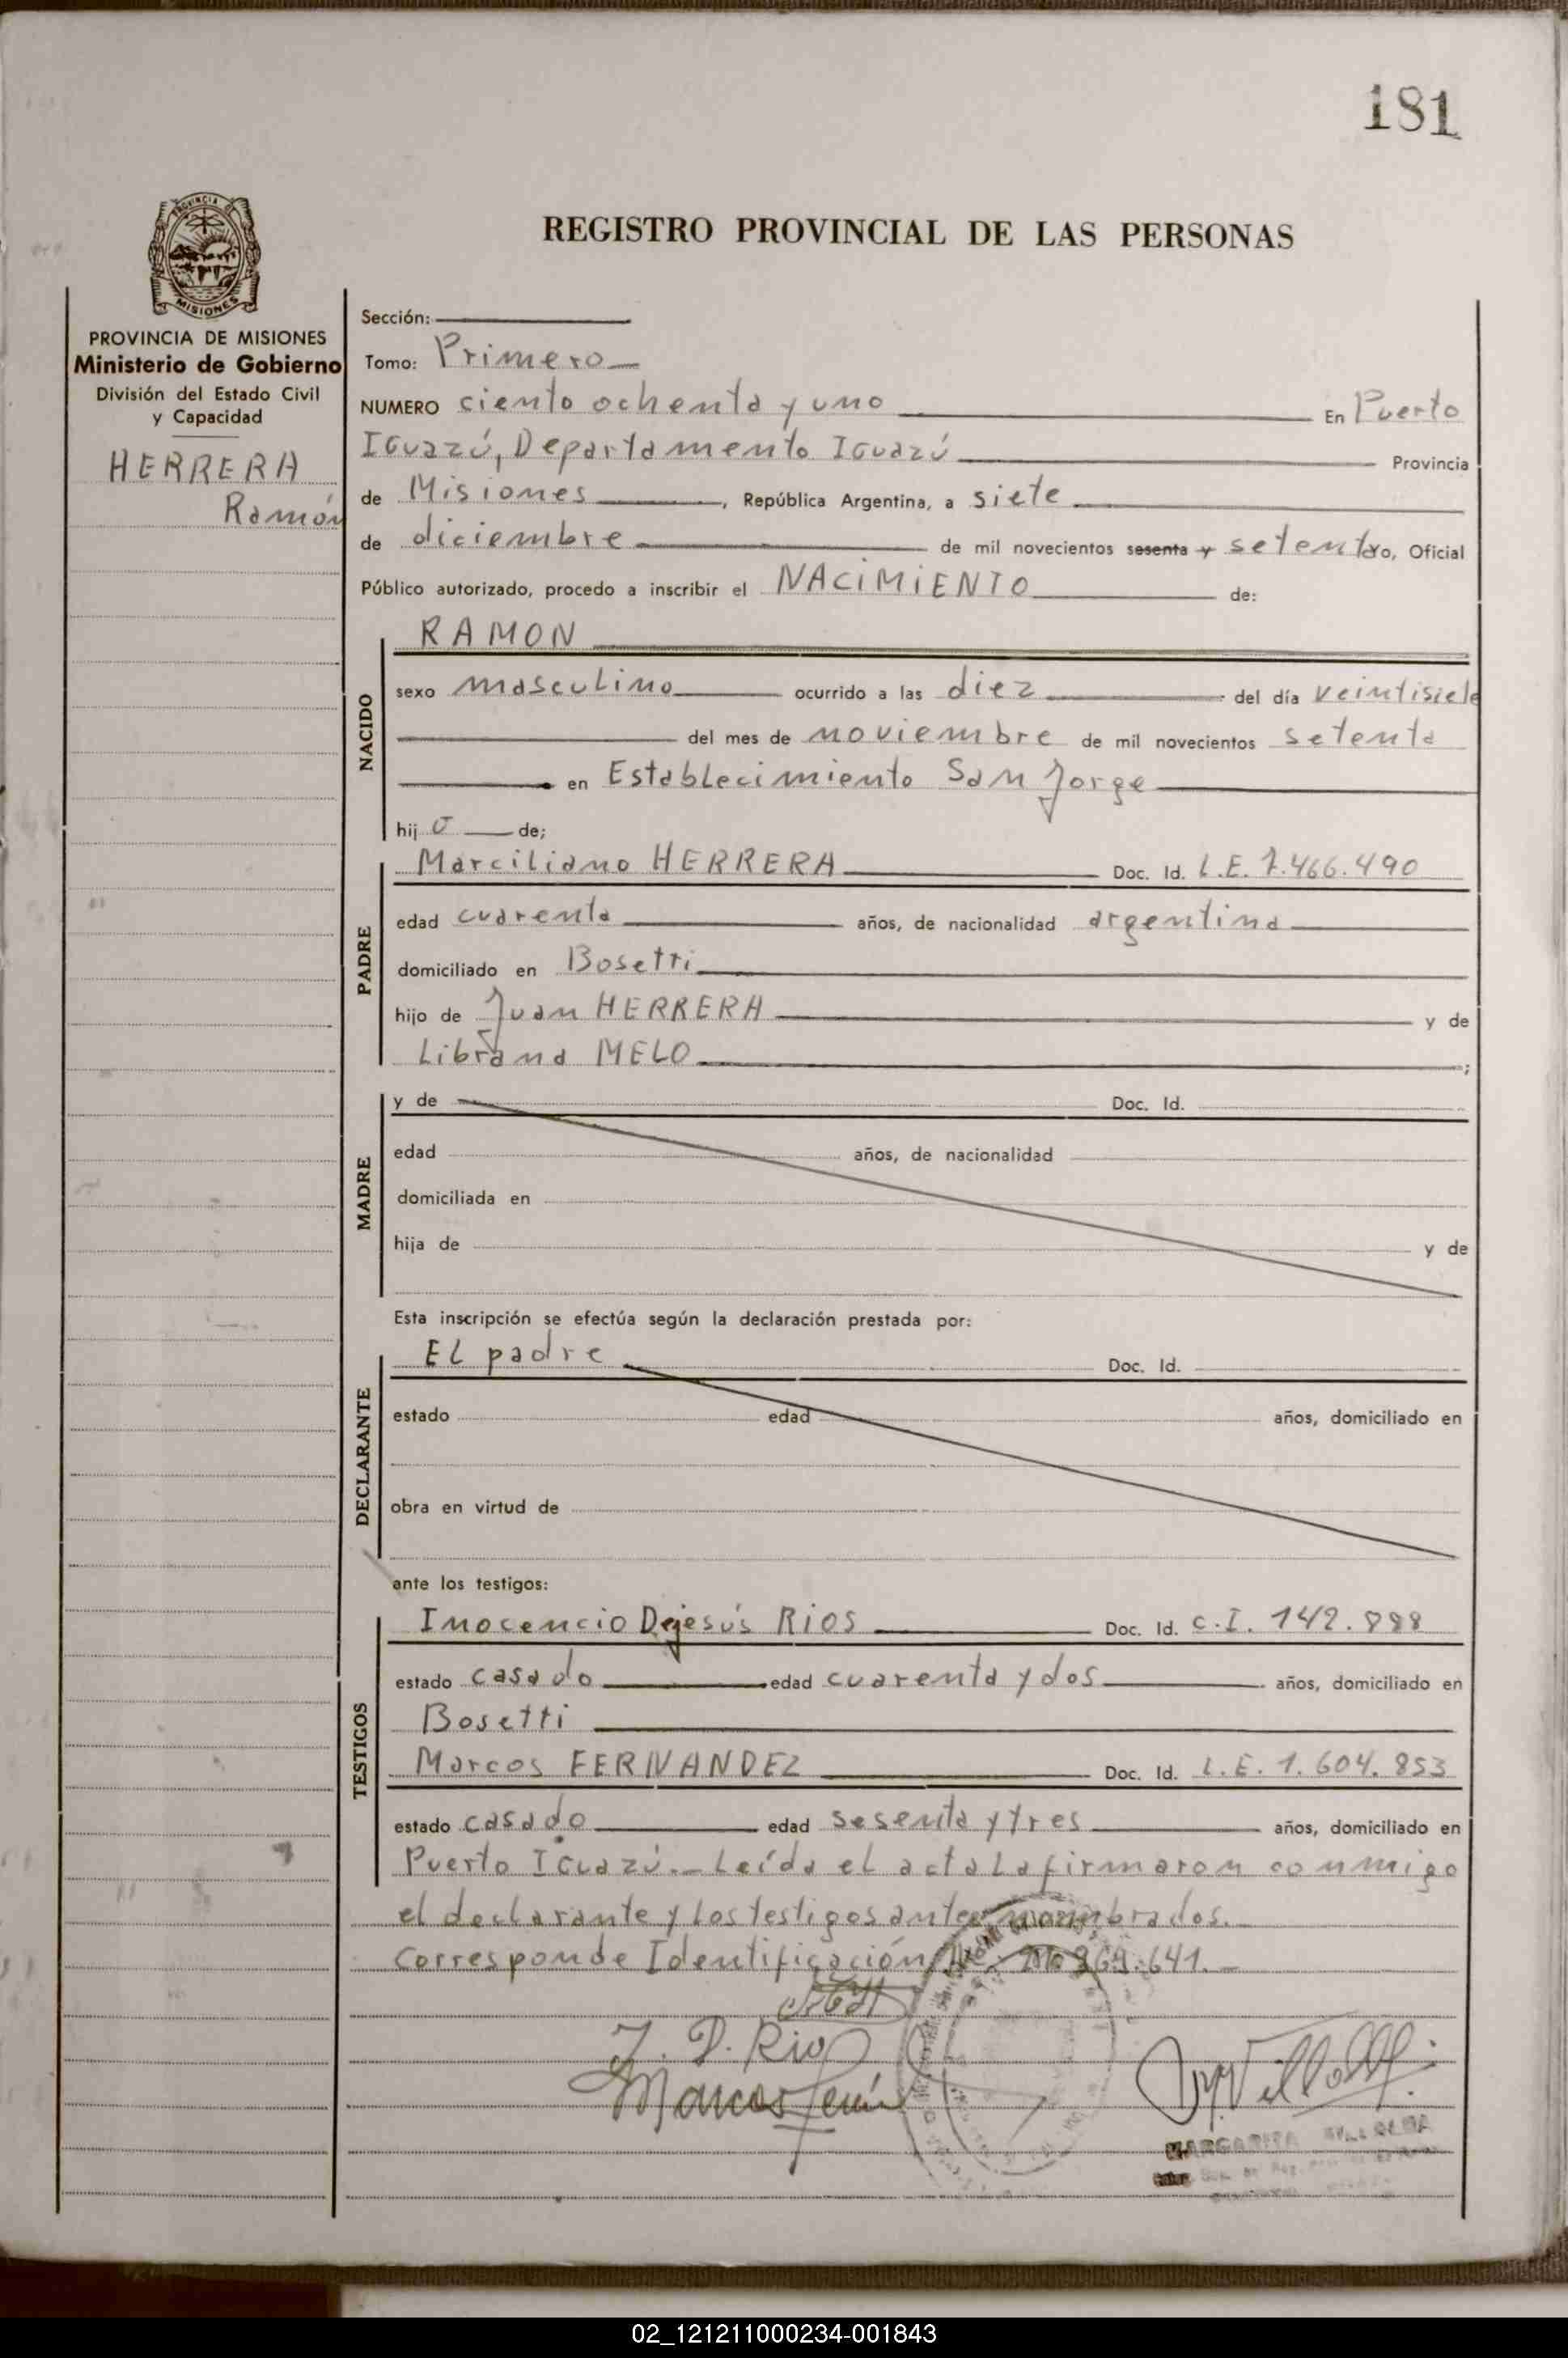 181
PROVINCIA DE
MISIONES
REGISTRO PROVINCIAL DE LAS PERSONAS
PROVINCIA DE MISIONES
Ministerio de Gobierno
División del Estado Civil
y Capacidad
HERRERA
Ramón
Sección:
Tomo: Primero
NUMERO ciento ochenta y uno En Puerto
Iguazú, Departamento Iguazú Provincia
de Misiones, República Argentina, a siete
de diciembre de mil novecientos sesenta y setenta yo, Oficial
Público autorizado, procedo a inscribir el NACiMiENTO de:
NACIDO
RAMON
sexo masculino ocurrido a las diez del día veintisiete
del mes de noviembre de mil novecientos setenta
en Establecimiento San Jorge
hijo de;
PADRE
Marciliano HERRERA Doc. Id. L.E. 7.466.490
edad cuarenta años, de nacionalidad argentina
domiciliado en Bosetti
hijo de Juan HERRERA y de
Librana MELO;
MADRE
y de Doc. Id.
edad años, de nacionalidad
domiciliada en
hija de y de
Esta inscripción se efectúa según la declaración prestada por:
DECLARANTE
El padre Doc. Id.
estado edad años, domiciliado en
obra en virtud de
ante los testigos:
TESTIGOS
Inocencio Dejesús RIOS Doc. Id. C.I. 142.888
estado casado edad cuarenta y dos años, domiciliado en
Bosetti
Marcos FERNANDEZ Doc. Id. L.E. 1.604.853
estado casado edad sesenta y tres años, domiciliado en
Puerto Iguazú.- Leída el acta la firmaron conmigo
el declarante y los testigos antes nombrados.
Corresponde Identificación
J. D. Rios
Marcos
MARGARITA VILLALBA
02_121211000234-001843